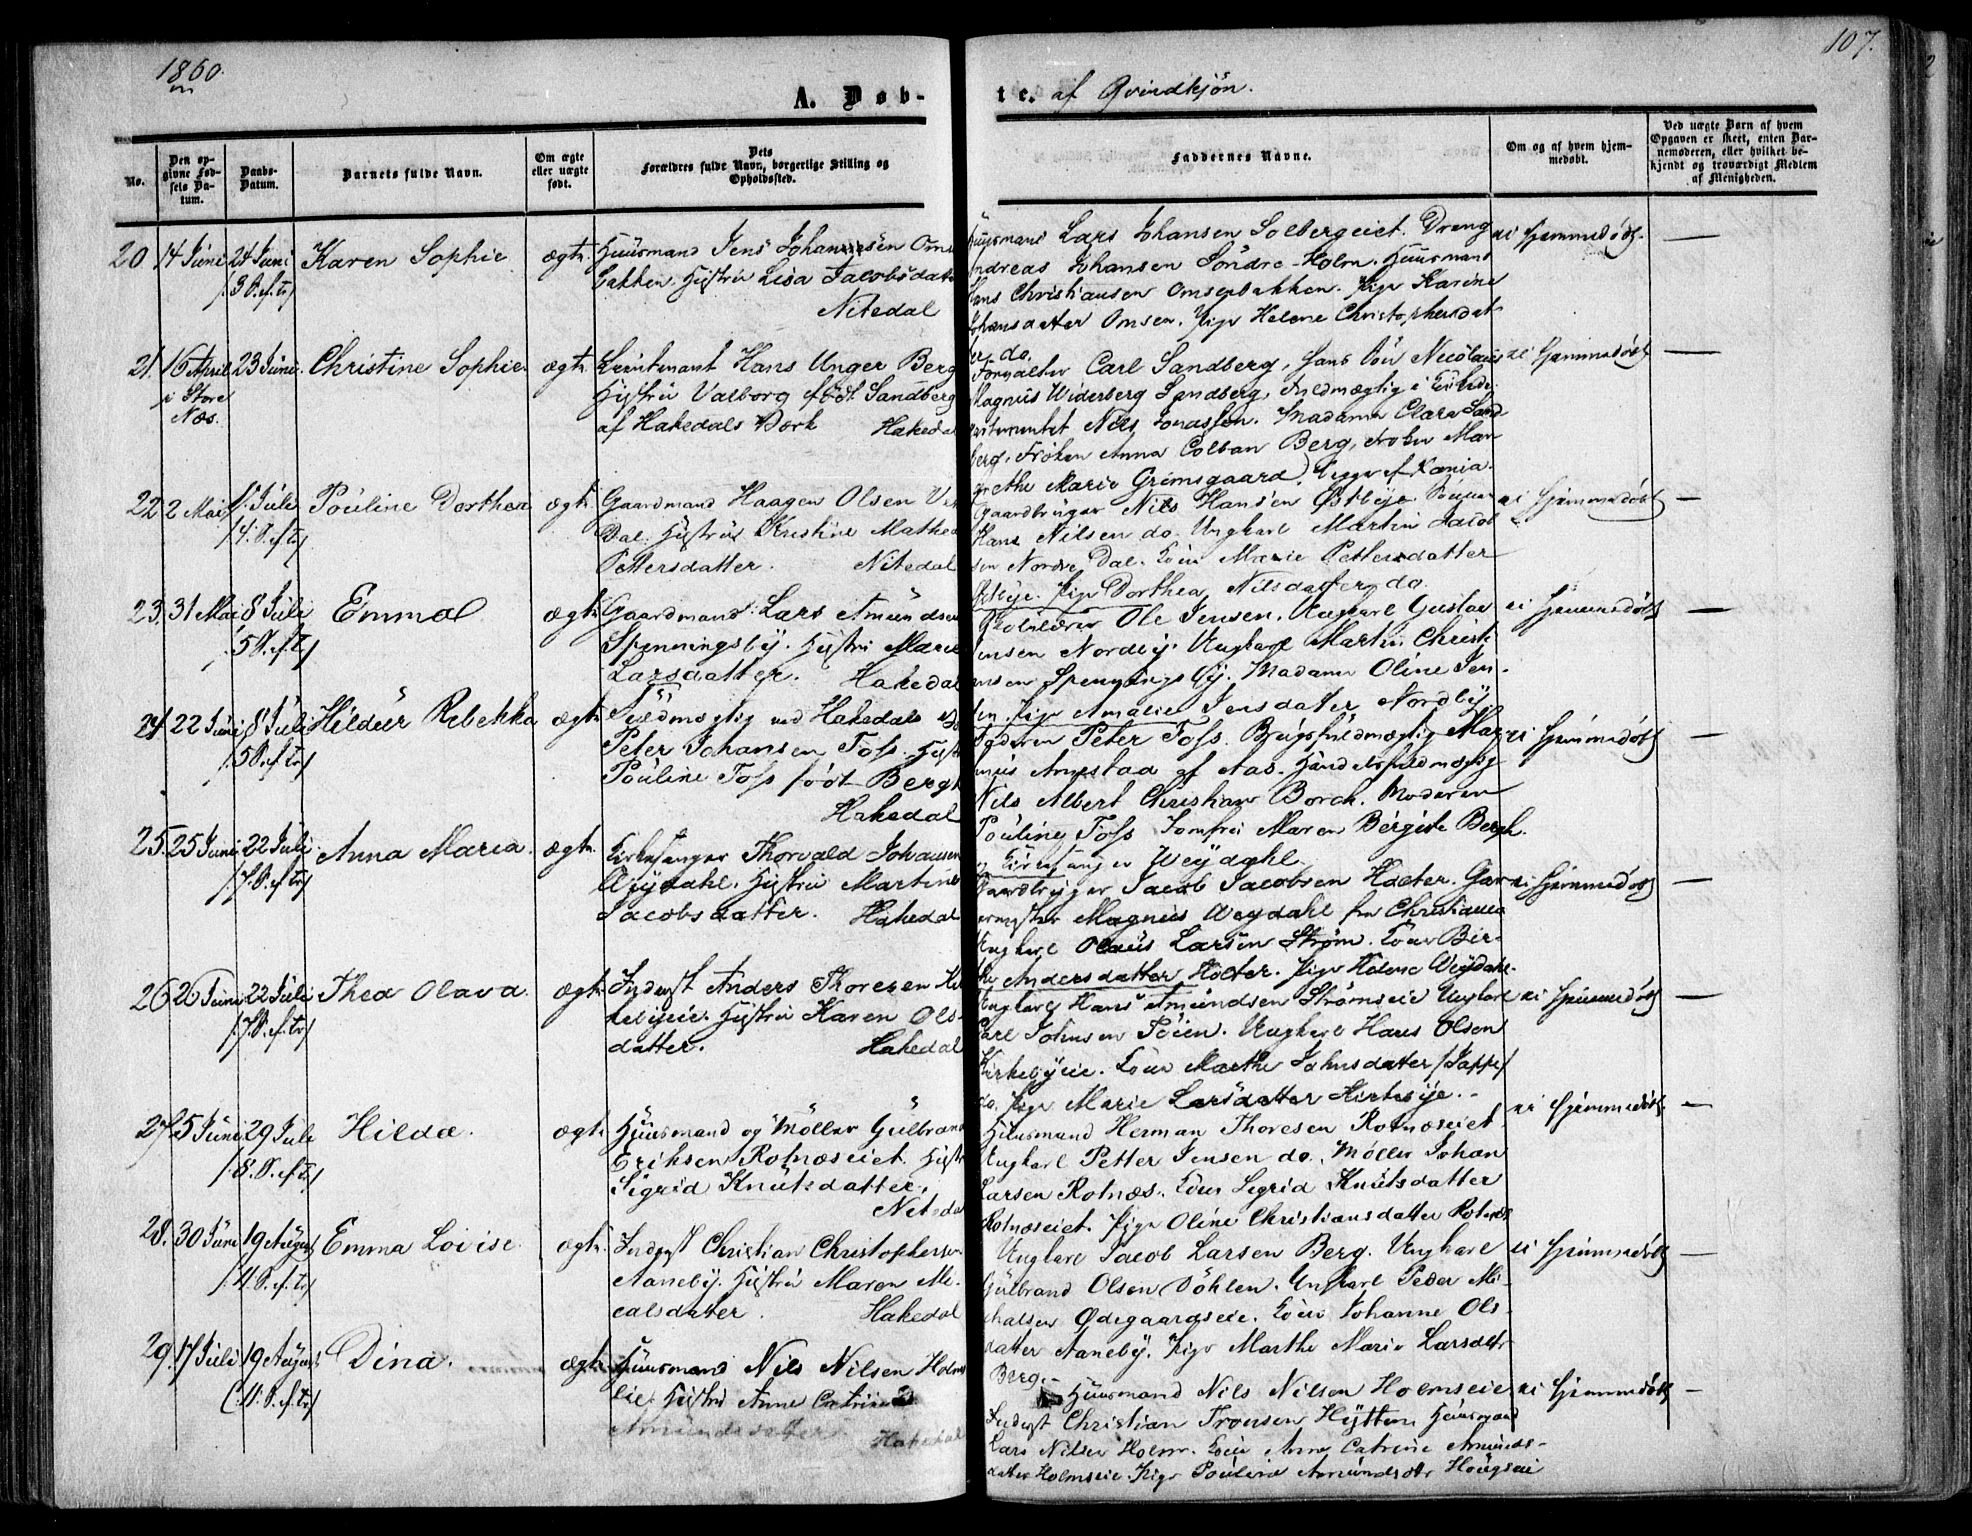 1860.
107.
A. Døb-
te. af Qvindkjön.
No.
Den op-
givne Fød-
sels Da-
tum.
Daabs-
Datum.
Barnets fulde Navn.
Om ægte
eller uægte
født.
Dets
Forældres fulde Navn, borgerlige Stilling og
Opholdssted.
Faddernes Navne.
Om og af hvem hjem-
medøbt.
Ved uægte Børn af hvem
Opgaven er skeet, enten Bar-
nemoderen, eller hvilket be-
kjendt og troværdigt Medlem
af Menigheden.
20 14 Juni 24 Juni Karen Sophie ægte Huusmand Jens Johannesen
/3 S. ef. tr/ bakken. Hustru Lisa Jacobsdatt
Nitedal
Lars Johansen Solbergeiet. Dreng ei hjemmedøbt —
Johansen Söndre-Holm. Huusmand
Christiansen Omsenbakken. Pige Karine
datter Omsen. Pige Helene Christophersdat-
ter do.
21. 16 April 23 Juni Christine Sophie ægte Lieutenant Hans Unger Berg
i Store Hustru Valborg födt Sandberg
Næs. af Hakedals Værk Hakedal
Forvalter Carl Sandberg, Hans Nicolaus ei hjemmedøbt —
Magnus Widerberg Sandberg, Fuldmægtig i
Nils Jonassen. Madame Clara Sand
berg, Fröken Anna Colban Berg, Fröken Mar
grethe Marie Grimsgaard
22 2 Mai 1 Juli Pouline Dorthea ægte Gaardmand Haagen Olsen
/4. S. ef. tr/ Dal. Hustru Kristine Mathea
Pettersdatter. Nitedal
Gaardbruger Nils Hansen Østbye. ei hjemmedøbt —
Hans Nilsen do. Ungkarl Martin Jacob
sen Nordre Dal. Kone Marie Pettersdatter
Pige Dorthea Nilsdatter do.
23. 31 Mai 8 Juli Emma ægte Gaardmand Lars Amundsen
/5 S. ef. tr/ Spenningsby. Hustru Marie
Larsdatter. Hakedal
Ole Jensen. Ungkarl Gustav ei hjemmedøbt —
Jensen Nordby. Ungkarl Martin Christi
ansen Spenningsby. Madame Oline Jen-
sen. Pige Amalie Jensdatter Nordby
24 22 Juni 8 Juli Hildur Rebekka ægte Fuldmægtig ved Hakedals
/5 S. ef. tr/ Peter Johansen Foss. Hustr
Pouline Foss födt Bergh
Hakedal
Faderen Peter Foss. Brugsfuldmægtig Mag- ei hjemmedøbt —
nus af Aas. Handelsfuldmægtig
Nils Albert Christian Borch. Moderen
Pouline Foss Jomfru Maren Birgitte Bergh.
25. 25 Juni 22 Juli Anna Maria. ægte. Kirkesanger Thorvald Johansen
/7. S. ef. tr/ Weydahl. Hustru Martine
Jacobsdatter. Hakedal
Kirkesanger Weydahl.
Gaardbruger Jacob Jacobsen Holter. ei hjemmedøbt —
Magnus Weydahl fra Christiania
Ungkarl Olaus Larsen Strøm. Kone Bir-
the Andersdatter Holter. Pige Helene Weydahl.
26 26 Juni 22 Juli Thea Olava. ægte Inderst Anders Thoresen Kir
/7. S. ef. tr/ kebyeie. Hustru Karen Ols-
datter. Hakedal
Ungkarl Hans Amundsen Strömseie Ungkarl ei hjemmedøbt —
Carl Johnsen Ungkarl Hans Olsen
Kirkebyeie. Kone Marthe Johnsdatter
do. Pige Marie Larsdatter Kirkebye.
27. 5 Juni 29 Juli Hilda. ægte Huusmand og Möller Gulbrand
/8. S. ef. tr/ Eriksen Rotnæseiet. Hustr
Sigrid Knutsdatter.
Nitedal
Huusmand Herman Thoresen Rotnæseiet. ei hjemmedøbt —
Ungkarl Petter Jensen do. Møller Johan
Larsen Rotnæs. Kone Sigrid Knutsdatter
Rotnæseiet. Pige Oline Christiansdatter Rotnæs
28. 30 Juni 19 August Emma Lovise. ægte Inderst Christian Christophersen
/11. S. ef. tr/ Aaneby. Hustru Maren Mi-
calsdatter. Hakedal
Ungkarl Jacob Larsen Berg. Ungkarl ei hjemmedøbt —
Gulbrand Olsen Döhlen. Ungkarl Peder Mi-
chalsen Ødegaardseie. Kone Johanne Ols-
datter Aaneby. Pige Marthe Marie Larsdatter
Berg.
29. 17 Juli 19 August Dina. ægte Huusmand Nils Nilsen Holms
/11. S. ef. tr/ eie. Hustru Anne Catrine
Amundsdatter. Hakedal
Huusmand Nils Nilsen Holmseie ei hjemmedøbt —
Inderst Christian Tronsen Hytten. Huusmand
Lars Nilsen Holm. Kone Anne Catrine Amunds-
datter Holmseie. Pige Pouline Amundsdatter Hougseie